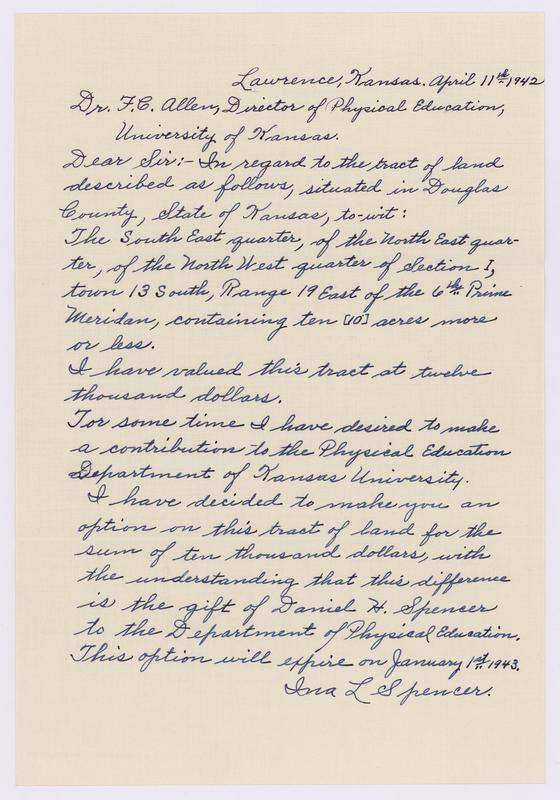 Lawrence, Kansas. April 11th 1942
Dr. F.C. Allen, Director of Physical Education,
University of Kansas.
Dear Sir:- In regard to the tract of land
described as follows, situated in Douglas
County, State of Kansas, to-wit:
The South East quarter, of the North East quar-
ter, of the North West quarter of Section I,
town 13 South, Range 19 East of the 6th Prime
Meridan, containing ten [10] acres more
or less.
I have valued this tract at twelve
thousand dollars.
For some time I have desired to make
a contribution to the Physical Education
Department of Kansas University.
I have decided to make you an
option on this tract of land for the
sum of ten thousand dollars, with
the understanding that this difference
is the gift of Daniel H. Spencer
to the Department of Physical Education.
This option will expire on January 1st 1943.
Ina L Spencer.